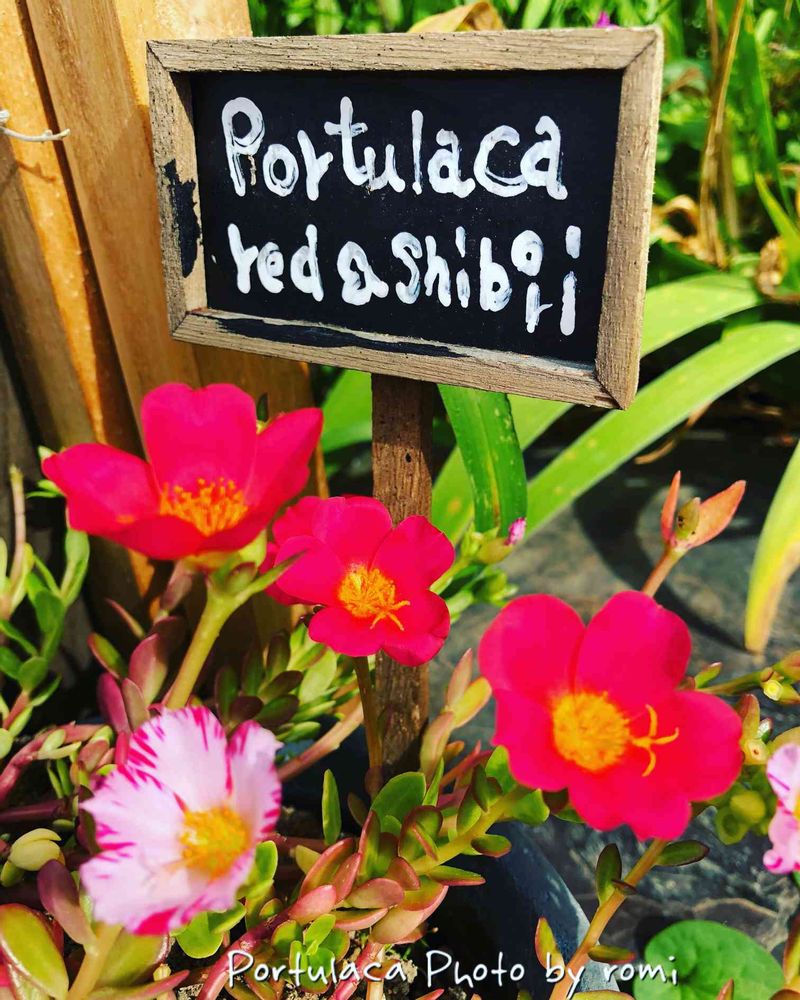 Portulaca
red & Shibori
Portulaca Photo by romi